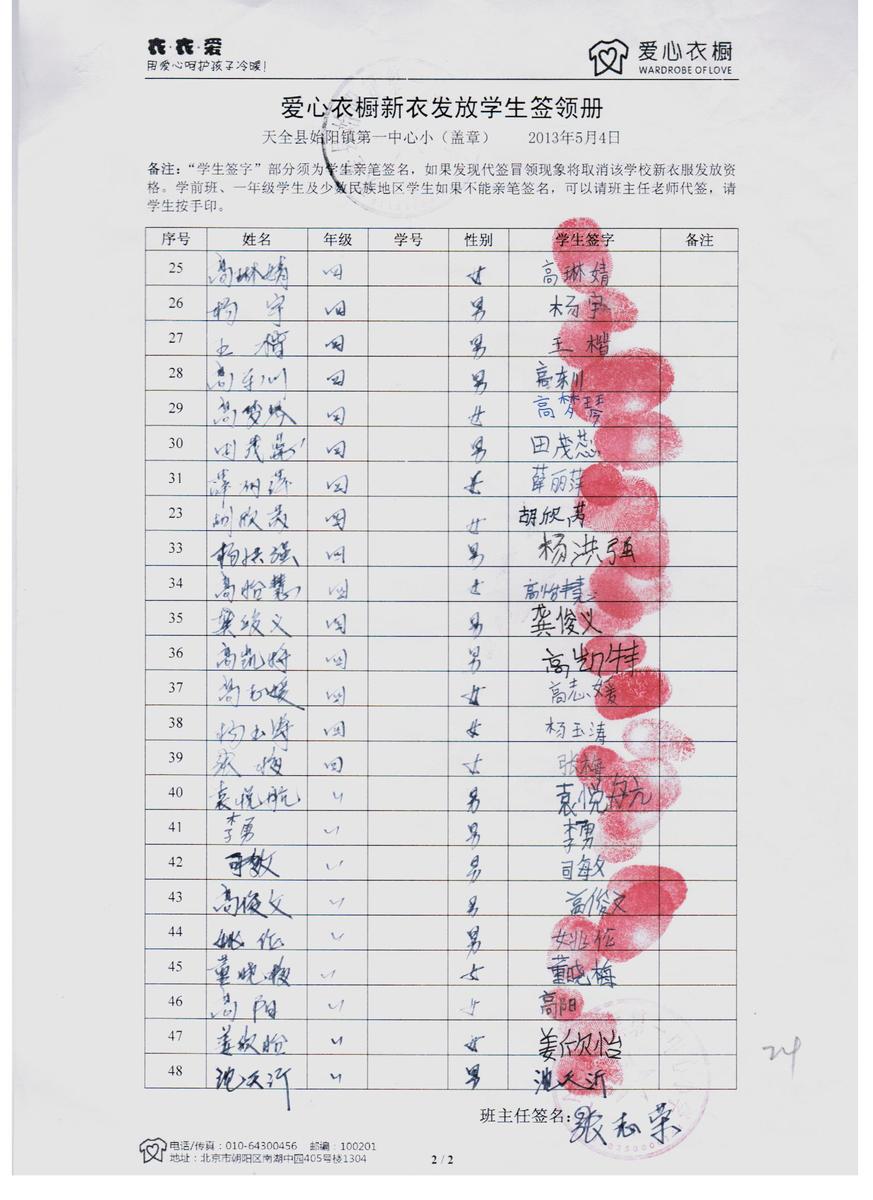 衣·衣·爱
用爱心呵护孩子冷暖!
爱心衣橱
WARDROBE OF LOVE
爱心衣橱新衣发放学生签领册
天全县始阳镇第一中心小（盖章） 2013年5月4日
备注：“学生签字”部分须为学生亲笔签名，如果发现代签冒领现象将取消该学校新衣服发放资
格。学前班、一年级学生及少数民族地区学生如果不能亲笔签名，可以请班主任老师代签，请
学生按手印。
序号 姓名 年级 学号 性别 学生签字 备注
25 高琳婧 四 女 高琳婧
26 杨宇 四 男 杨宇
27 王楷 四 男 王楷
28 高东川 四 男 高东川
29 高梦琴 四 女 高梦琴
30 田茂蕊 四 男 田茂蕊
31 薛丽萍 四 女 薛丽萍
23 胡欣 四 女 胡欣
33 杨洪强 四 男 杨洪强
34 高怡慧 四 女 高怡慧
35 龚俊义 四 男 龚俊义
36 高凯 四 男 高凯
37 高志媛 四 女 高志媛
38 杨玉涛 四 女 杨玉涛
39 张梅 四 女 张梅
40 袁悦航 〃 男 袁悦航
41 李勇 〃 男 李勇
42 司敏 〃 男 司敏
43 高俊文 〃 男 高俊文
44 姚佐 〃 男 姚佐
45 董晓梅 〃 女 董晓梅
46 高阳 〃 女 高阳
47 姜欣怡 〃 女 姜欣怡
48 沈天沂 〃 男 沈天沂
24
班主任签名：张志荣
电话/传真：010-64300456 邮编：100201
地址：北京市朝阳区南湖中园405号楼1304
2 / 2